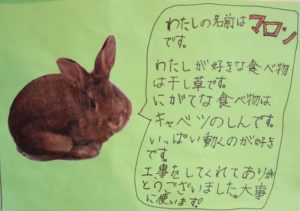 わたしの名前はマロン
です。
わたしが好きな食べ物
は干し草です。
にがてな食べ物は
キャベツのしんです。
いっぱい動くのが好き
です。
工事をしてくれてありが
とうございました。大事
に使います